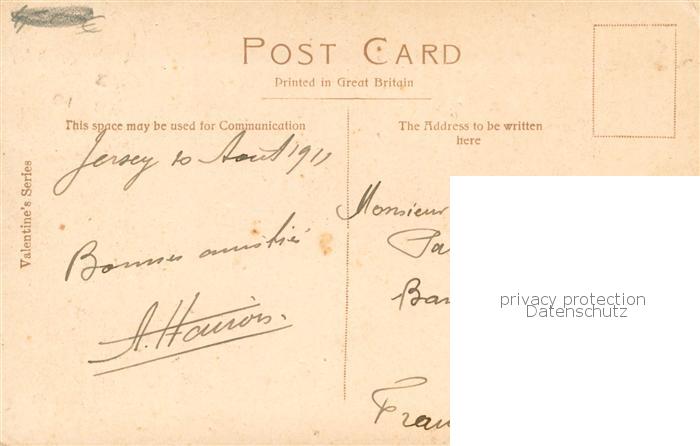 POST CARD
Printed in Great Britain
This space may be used for Communication
The Address to be written
here
Valentine's Series
Jersey 20 Aout 1911
Bonnes amitiés
A.
Monsieur
privacy protection
Datenschutz